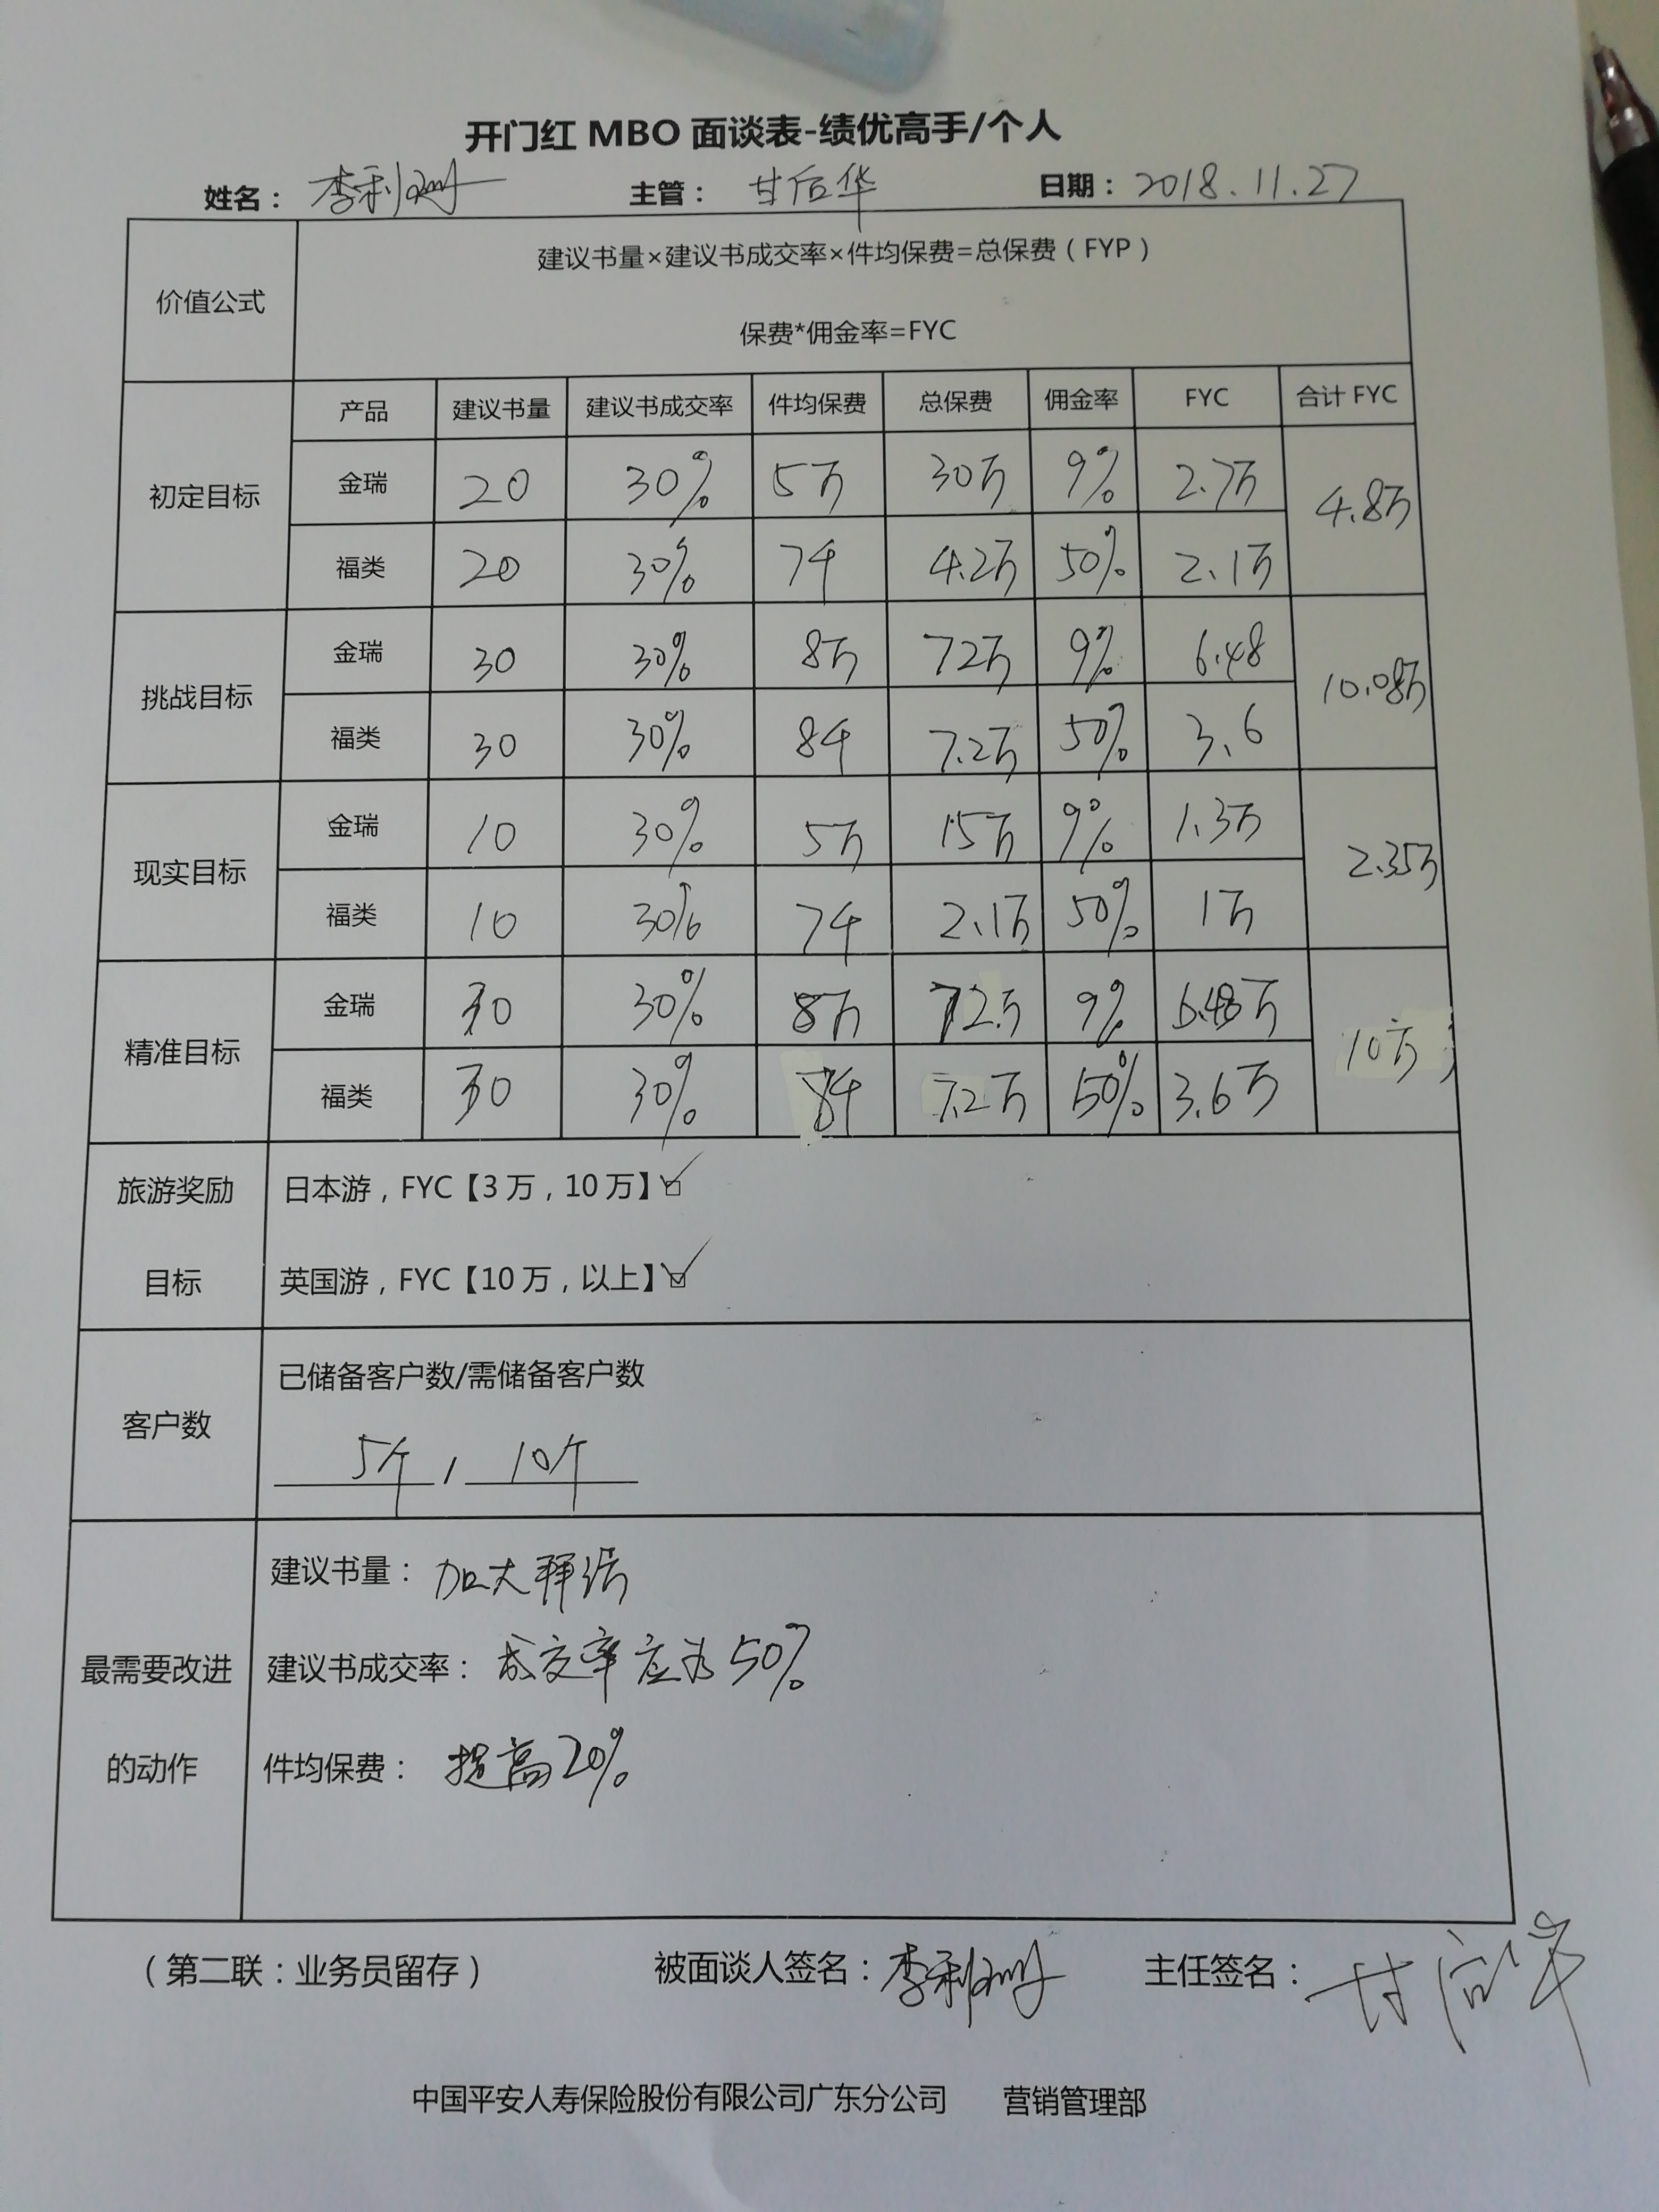 开门红 MBO 面谈表-绩优高手/个人
姓名： 李利 主管： 甘后华 日期：2018.11.27
价值公式
建议书量×建议书成交率×件均保费=总保费（FYP）
保费*佣金率=FYC
产品 建议书量 建议书成交率 件均保费 总保费 佣金率 FYC 合计 FYC
初定目标
金瑞 20 30% 5万 30万 9% 2.7万 4.8万
福类 20 30% 7千 4.2万 50% 2.1万
挑战目标
金瑞 30 30% 8万 72万 9% 6.48 10.08万
福类 30 30% 8千 7.2万 50% 3.6
现实目标
金瑞 10 30% 5万 15万 9% 1.3万 2.35万
福类 10 30% 7千 2.1万 50% 1万
精准目标
金瑞 30 30% 8万 72万 9% 6.48万 10万
福类 30 30% 8千 7.2万 50% 3.6万
旅游奖励
目标
日本游，FYC【3万，10万】☑
英国游，FYC【10万，以上】☑
客户数
已储备客户数/需储备客户数
5个 / 10个
最需要改进
的动作
建议书量： 加大拜访
建议书成交率： 成交率应为50%
件均保费： 提高20%
（第二联：业务员留存） 被面谈人签名：李利 主任签名： 甘后华
中国平安人寿保险股份有限公司广东分公司 营销管理部